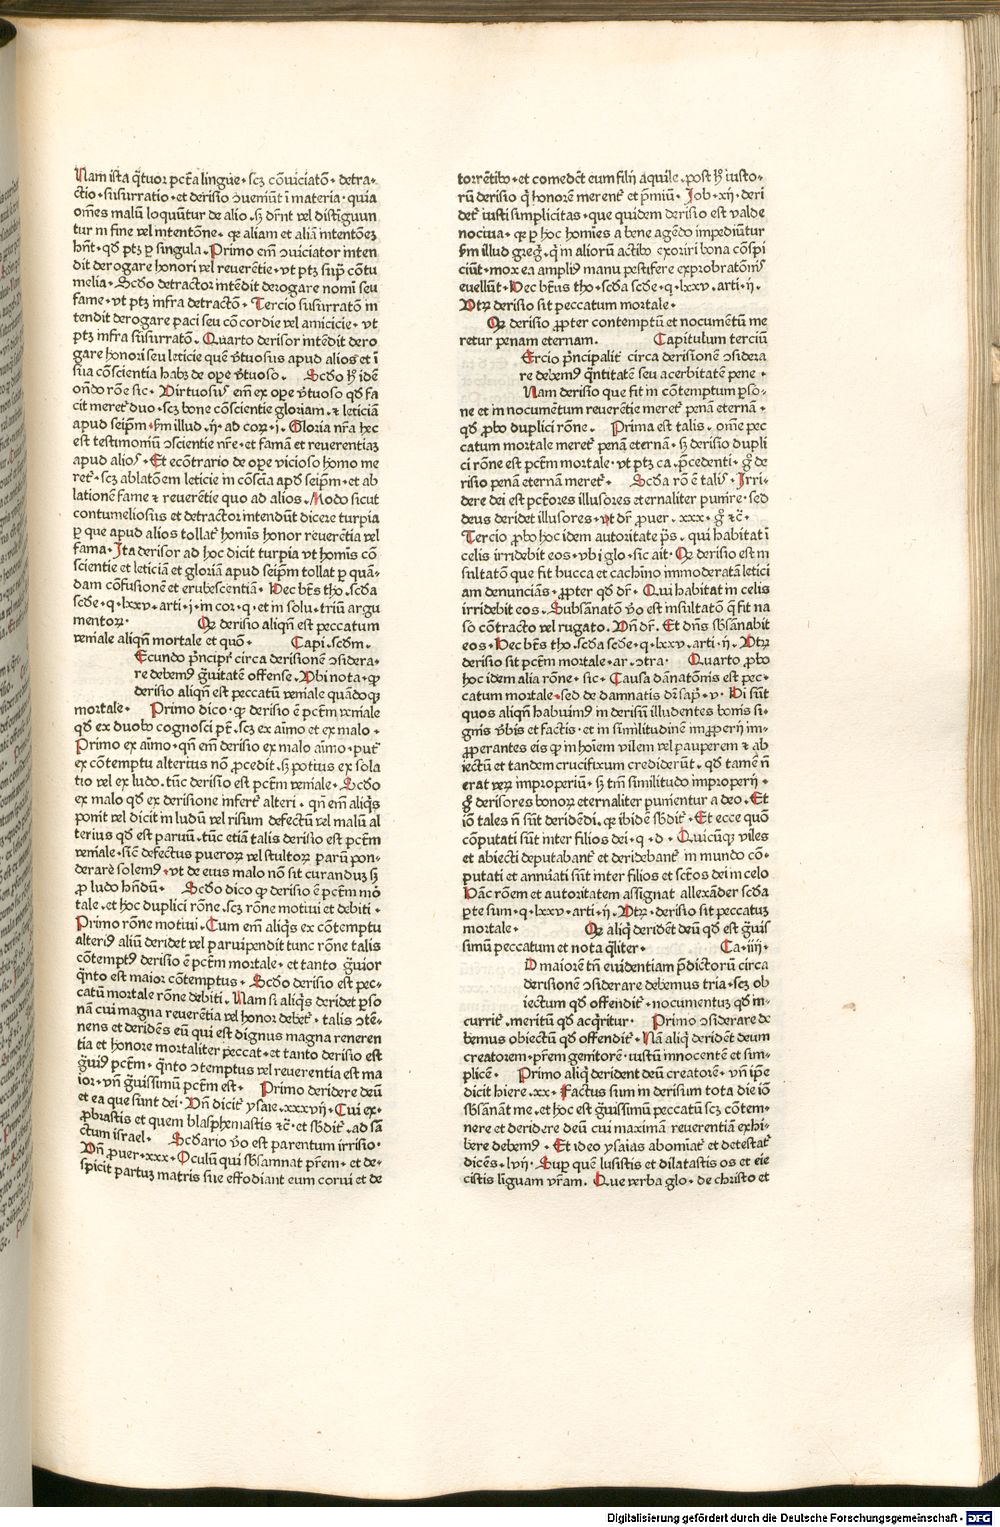 Nam ista q̃tuor pctã lingue · scʒ cõuiciatõ · detra-
ctio · susurratio · et derisio ↄueniũt ĩ materia · quia
om̃es malũ loquũtur de alio · sʒ dr̃nt vel distĩguun
tur in fine vel intentõne · qꝛ aliam et aliã intentõeʒ
hñt · qđ ptʒ ꝑ singula · Primo em̃ ↄuiciator inten
dit derogare honori vel reuerẽtie · vt ptʒ supͣ cõtu
melia · Scđo detractor intẽdit derogare nomĩ seu
fame · vt ptʒ infra detractõ · Tercio susurratõ in
tendit derogare paci seu cõcordie vel amicicie · vt
ptʒ infra sũsurratõ · Quarto derisor intẽdit dero
gare honori seu leticie quẽ ṽtuosus apud alios et ĩ
sua cõscientia habʒ de oꝑe ṽtuoso · Scđo hͦ idẽ
oñdo rõne sic · Virtuosuꝰ em̃ ex oꝑe ṽtuoso qđ fa
cit meretᷣ duo · scʒ bone cõscientie gloriam · ⁊ leticiã
apud seip̃m · ẜm illud · ij · ad coꝝ · i · Gloria nr̃a hec
est testimoniũ ↄscientie nr̃e · et famã et reuerentiaʒ
apud alioꝰ · Et ecõtrario de oꝑe vicioso homo me
retᷣ · scʒ ablatõem leticie in cõscĩa apđ seip̃m · et ab
lationẽ fame ⁊ reuerẽtie quo ad alios · Modo sicut
contumeliosus et detractor intendũt dicere turpia
ꝑ que apud alios tollatᷣ homĩs honor reuerẽtia vel
fama · Ita derisor ad hoc dicit turpia vt homĩs cõ
scientie et leticiã et gloriã apud seip̃m tollat ꝑ quã-
dam cõfusionẽ et erubescentiã · Hec bt̃us tho · scđa
scđe · q · lxxv · arti · i · in coꝛ · q · et in solu · triũ argu
mentoꝝ · Qꝙ derisio aliqñ est peccatum
veniale aliqñ mortale et quõ · Capi · scđm ·
Ecundo p̃ncipꝰ circa derisionẽ ↄsidera-
re debemꝰ g̃uitatẽ offense · Vbi nota · ꝙ
derisio aliqñ est peccatũ veniale quãdoqʒ
mortale · Primo dico · ꝙ derisio ẽ pctm̃ veniale
qđ ex duobꝰ cognosci pt̃ · scʒ ex aĩmo et ex malo ·
Primo ex aĩmo · qñ em̃ derisio ex malo aĩmo · putᷣ
ex cõtemptu alterius nõ ꝓcedit · sʒ potius ex sola
tio vel ex ludo · tũc derisio est pctm̃ veniale · Scđo
ex malo qđ ex derisione infertᷣ alteri · qñ em̃ aliq̃s
ponit vel dicit in ludũ vel risum defectũ vel malũ al
terius qđ est paruũ · tũc etiã talis derisio est pctm̃
veniale · sicͥ defectus pueroꝝ vel stultoꝝ parũ pon-
derare solemꝰ · vt de eius malo nõ sit curandũ sʒ
ꝓ ludo hñdũ · Scđo dico ꝙ derisio ẽ pctm̃ mõ
tale · et hoc duplici rõne · scʒ rõne motiui et debiti ·
Primo rõne motiui · Cum em̃ aliq̃s ex cõtemptu
alteriꝰ aliũ deridet vel paruipendit tunc rõne talis
cõtemptꝰ derisio ẽ pctm̃ mortale · et tanto g̃uior
q̃nto est maior cõtemptus · Scđo derisio est pec-
catũ mortale rõne debiti · Nam si aliq̃s deridet ꝑso
nã cui magna reuerẽtia vel honor debetᷣ · talis ↄtẽ-
nens et deridẽs eũ qui est dignus magna reueren
tia et honore mortaliter peccat · et tanto derisio est
g̃uiꝰ pctm̃ · q̃nto ↄtemptus vel reuerentia est ma
ior · vñ g̃uissimũ pctm̃ est · Primo deridere deũ
et ea que sunt dei · Vñ dicitᷣ ysaie · xxxvij · Cui ex-
ꝓbrastis et quem blasphemastis ⁊c̃ · et sb̃ditᷣ · ad sã
ctum israel · Scđario ṽo est parentum irrisio ·
Vñ ꝓuer · xxx · Oculũ qui sb̃samnat pr̃em · et de-
spicit partuʒ matris sue effodiant eum corui et de
torrẽtibꝰ · et comedẽt eum filij aquile · post hͦ iusto-
rũ derisio q̃ honorẽ merentᷣ et p̃miũ · Job · xij · deri
detᷣ iusti simplicitas · que quidem derisio est valde
nociua · qꝛ ꝑ hoc homĩes a bene agẽdo impediũtur
ẜm illud greg̃ · q̃ in alioꝝ actibꝰ exoriri bona cõspi
ciũt · mox ea ampliꝰ manu pestifere exprobratõnis
euellũt · Hec bt̃us tho · scđa scđe · q · lxxv · arti · ij ·
Vtꝝ derisio sit peccatum mortale ·
Qꝙ derisio ꝓpter contemptũ et nocumẽtũ me
retur penam eternam · Capitulum terciũ
Ercio p̃ncipalitᷣ circa derisionẽ ↄsidera
re debemꝰ q̃ntitatẽ seu acerbitatẽ pene ·
Nam derisio que fit in cõtemptum ꝑso-
ne et in nocumẽtum reuerẽtie meretᷣ penã eternã ·
qđ ꝓbo duplici rõne · Prima est talis · om̃e pec
catum mortale meretᷣ penã eternã · sʒ derisio dupli
ci rõne est pctm̃ mortale · vt ptʒ ca · p̃cedenti · g̊ de
risio penã eternã meretᷣ · Scđa rõ ẽ talis · Irri-
dere dei est pctõres illusores eternaliter punire · sed
deus deridet illusores · vt dr̃ ꝓuer · xxx · g̊ ⁊c̃ ·
Tercio ꝓbo hoc idem autoritate p̃s · qui habitat ĩ
celis irridebit eos · vbi glo · sic ait · Qꝙ derisio est in
sultatõ que fit bucca et cachĩno immoderatã letici
am denunciãs · ꝓpter qđ dr̃ · Qui habitat in celis
irridebit eos · Subsãnatõ ṽo est insultatõ q̃ fit na
so cõtracto vel rugato · Vñ dr̃ · Et dñs sb̃sãnabit
eos · Hec bt̃us tho · scđa scđe · q · lxxv · arti · ij · Vtꝝ
derisio sit pctm̃ mortale · ar · ↄtra · Quarto ꝓbo
hoc idem alia rõne · sic · Causa dãnatõnis est pec-
catum mortale · sed de damnatis dr̃ sap̃ · v · Hi sũt
quos aliqñ habuimꝰ in derisũ illudentes bonis si-
gnis ṽbis et factis · et in similitudinẽ imꝓperij im-
ꝓperantes eis ꝙ in hoĩem vilem vel pauperem ⁊ ab
iectũ et tandem crucifixum crediderũt · qđ tamẽ ñ
erat veꝝ improperiũ · sʒ tm̃ similitudo improperij ·
g̊ derisores bonoꝝ eternaliter punientur a deo · Et
iõ tales ñ sũt deridẽdi · qꝛ ibidẽ sb̃ditᷣ · Et ecce quõ
cõputati sũt inter filios dei · q · d · Quicũqʒ viles
et abiecti deputabantᷣ et deridebantᷣ in mundo cõ-
putati et annũati sũnt inter filios et sctõs dei in celo
Hãc rõem et autoritatem assignat allexãder scđa
ꝑte sum · q · lxxv · arti · ij · Vtꝝ · derisio sit peccatuʒ
mortale · Qꝙ aliq̃ deridẽt deũ qđ est g̃uis
simũ peccatum et nota q̃liter · Ca · iiij ·
D maiorẽ tñ euidentiam p̃dictorũ circa
derisionẽ ↄsiderare debemus tria · scʒ ob
iectum qđ offenditᷣ · nocumentuʒ qđ in-
curritᷣ · meritũ qđ acq̃ritur · Primo ↄsiderare de
bemus obiectũ qđ offenditᷣ · Nã aliq̃ deridẽt deum
creatorem · pr̃em genitorẽ · iustũ innocentẽ et sim-
plicẽ · Primo aliq̃ derident deũ creatorẽ · vñ ip̃e
dicit hiere · xx · Factus sum in derisum tota die iõ
sb̃sãnãt me · et hoc est g̃uissimũ peccatũ scʒ cõtem-
nere et deridere deũ cui maximã reuerentiã exhi-
bere debemꝰ · Et ideo ysaias abomiatᷣ et detestatᷣ
dicẽs · lvij · Suꝑ quẽ lusistis et dilatastis os et eie
cistis liguam vr̃am · Que verba glo · de christo et
Digitalisierung gefördert durch die Deutsche Forschungsgemeinschaft - DFG